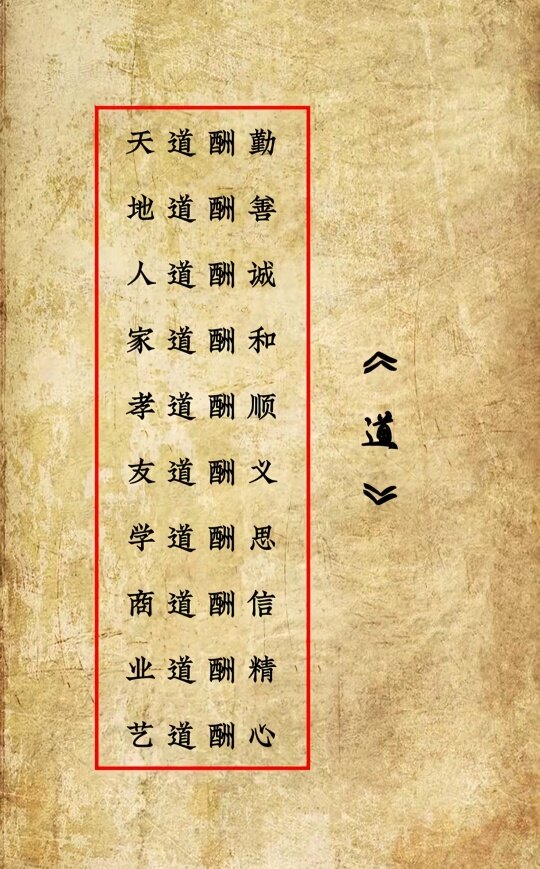 《道》
天道酬勤
地道酬善
人道酬诚
家道酬和
孝道酬顺
友道酬义
学道酬思
商道酬信
业道酬精
艺道酬心